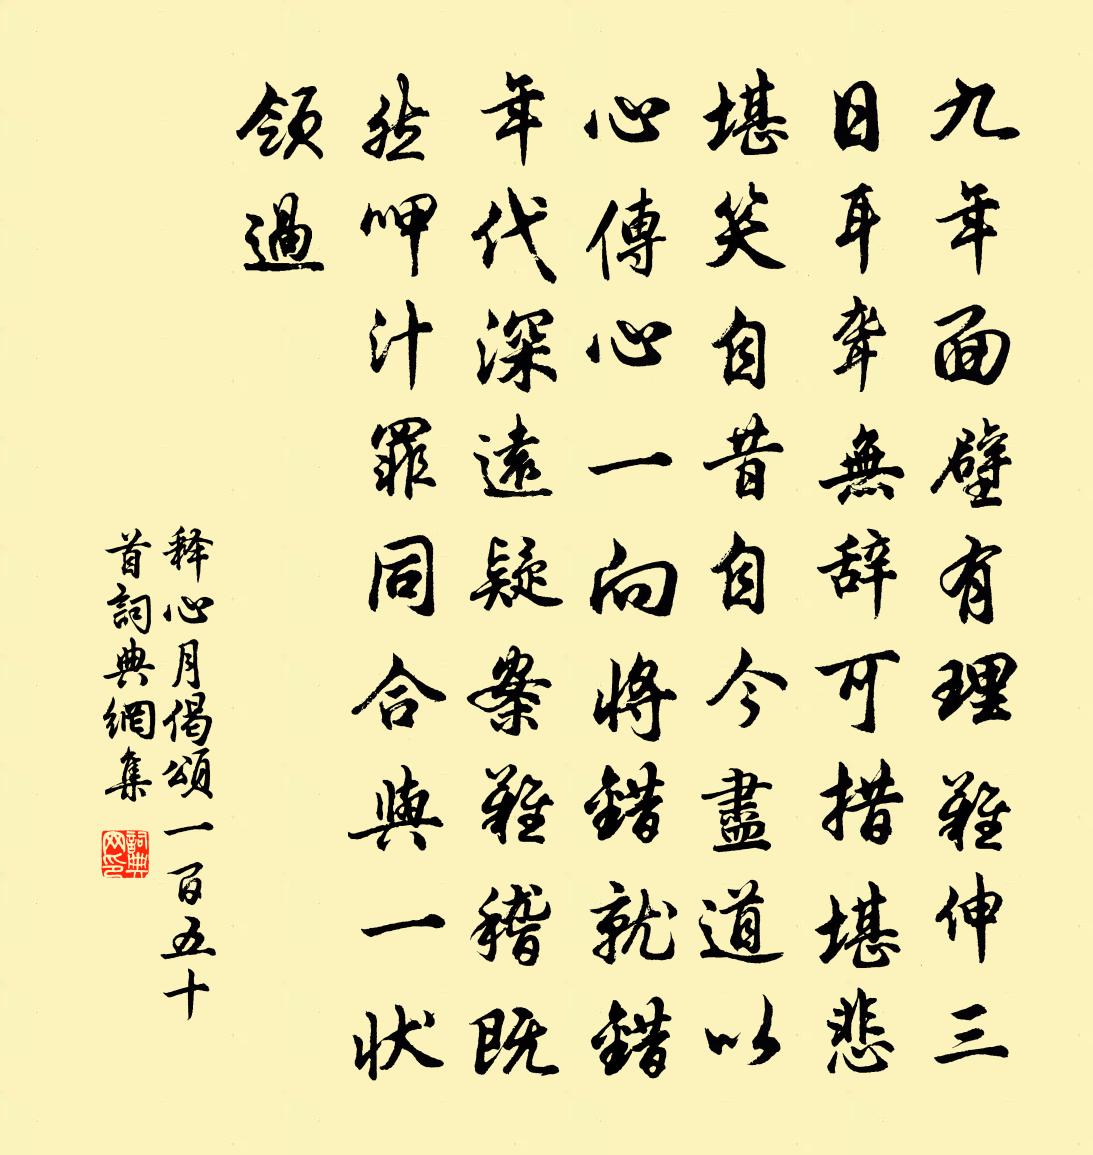 九年面壁有理難伸三
日耳聾無辞可措堪悲
堪笑自昔自今盡道以
心傳心一向將錯就錯
年代深遠疑案難稽既
然呷汁罪同合與一状
領過
释心月偈頌一百五十
首詞典網集
詞典網印